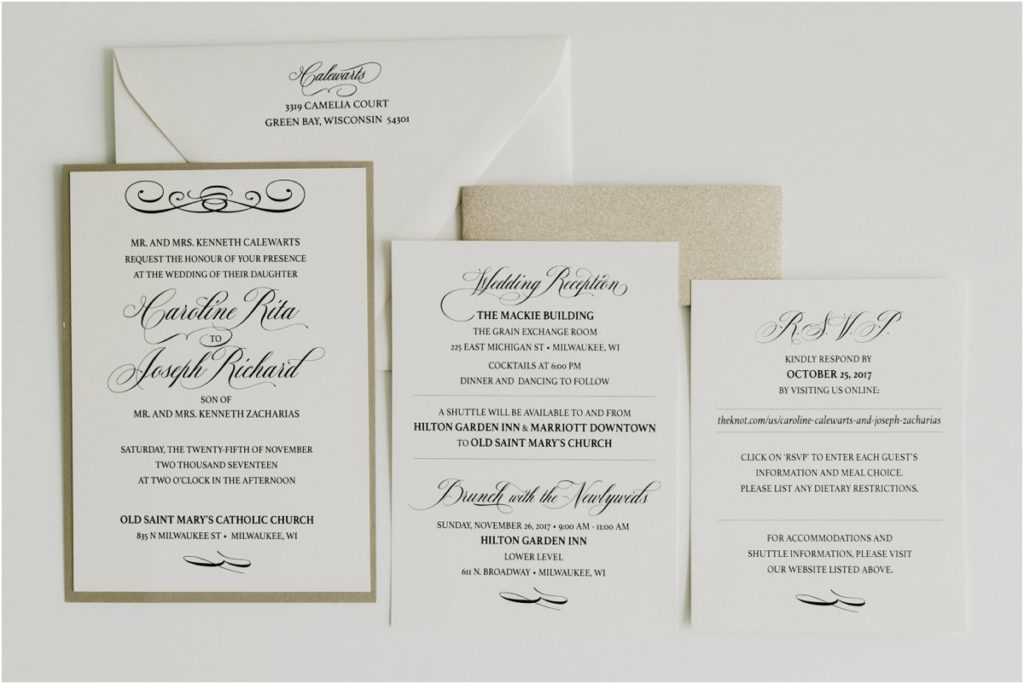 Calewarts
3319 CAMELIA COURT
GREEN BAY, WISCONSIN 54301
MR. AND MRS. KENNETH CALEWARTS
REQUEST THE HONOUR OF YOUR PRESENCE
AT THE WEDDING OF THEIR DAUGHTER
Caroline Rita
TO
Joseph Richard
SON OF
MR. AND MRS. KENNETH ZACHARIAS
SATURDAY, THE TWENTY-FIFTH OF NOVEMBER
TWO THOUSAND SEVENTEEN
AT TWO O'CLOCK IN THE AFTERNOON
OLD SAINT MARY'S CATHOLIC CHURCH
835 N MILWAUKEE ST • MILWAUKEE, WI
Wedding Reception
THE MACKIE BUILDING
THE GRAIN EXCHANGE ROOM
225 EAST MICHIGAN ST • MILWAUKEE, WI
COCKTAILS AT 6:00 PM
DINNER AND DANCING TO FOLLOW
A SHUTTLE WILL BE AVAILABLE TO AND FROM
HILTON GARDEN INN & MARRIOTT DOWNTOWN
TO OLD SAINT MARY'S CHURCH
Brunch with the Newlyweds
SUNDAY, NOVEMBER 26, 2017 • 9:00 AM - 11:00 AM
HILTON GARDEN INN
LOWER LEVEL
611 N. BROADWAY • MILWAUKEE, WI
R.S.V.P.
KINDLY RESPOND BY
OCTOBER 25, 2017
BY VISITING US ONLINE:
theknot.com/us/caroline-calewarts-and-joseph-zacharias
CLICK ON 'RSVP' TO ENTER EACH GUEST'S
INFORMATION AND MEAL CHOICE.
PLEASE LIST ANY DIETARY RESTRICTIONS.
FOR ACCOMMODATIONS AND
SHUTTLE INFORMATION, PLEASE VISIT
OUR WEBSITE LISTED ABOVE.